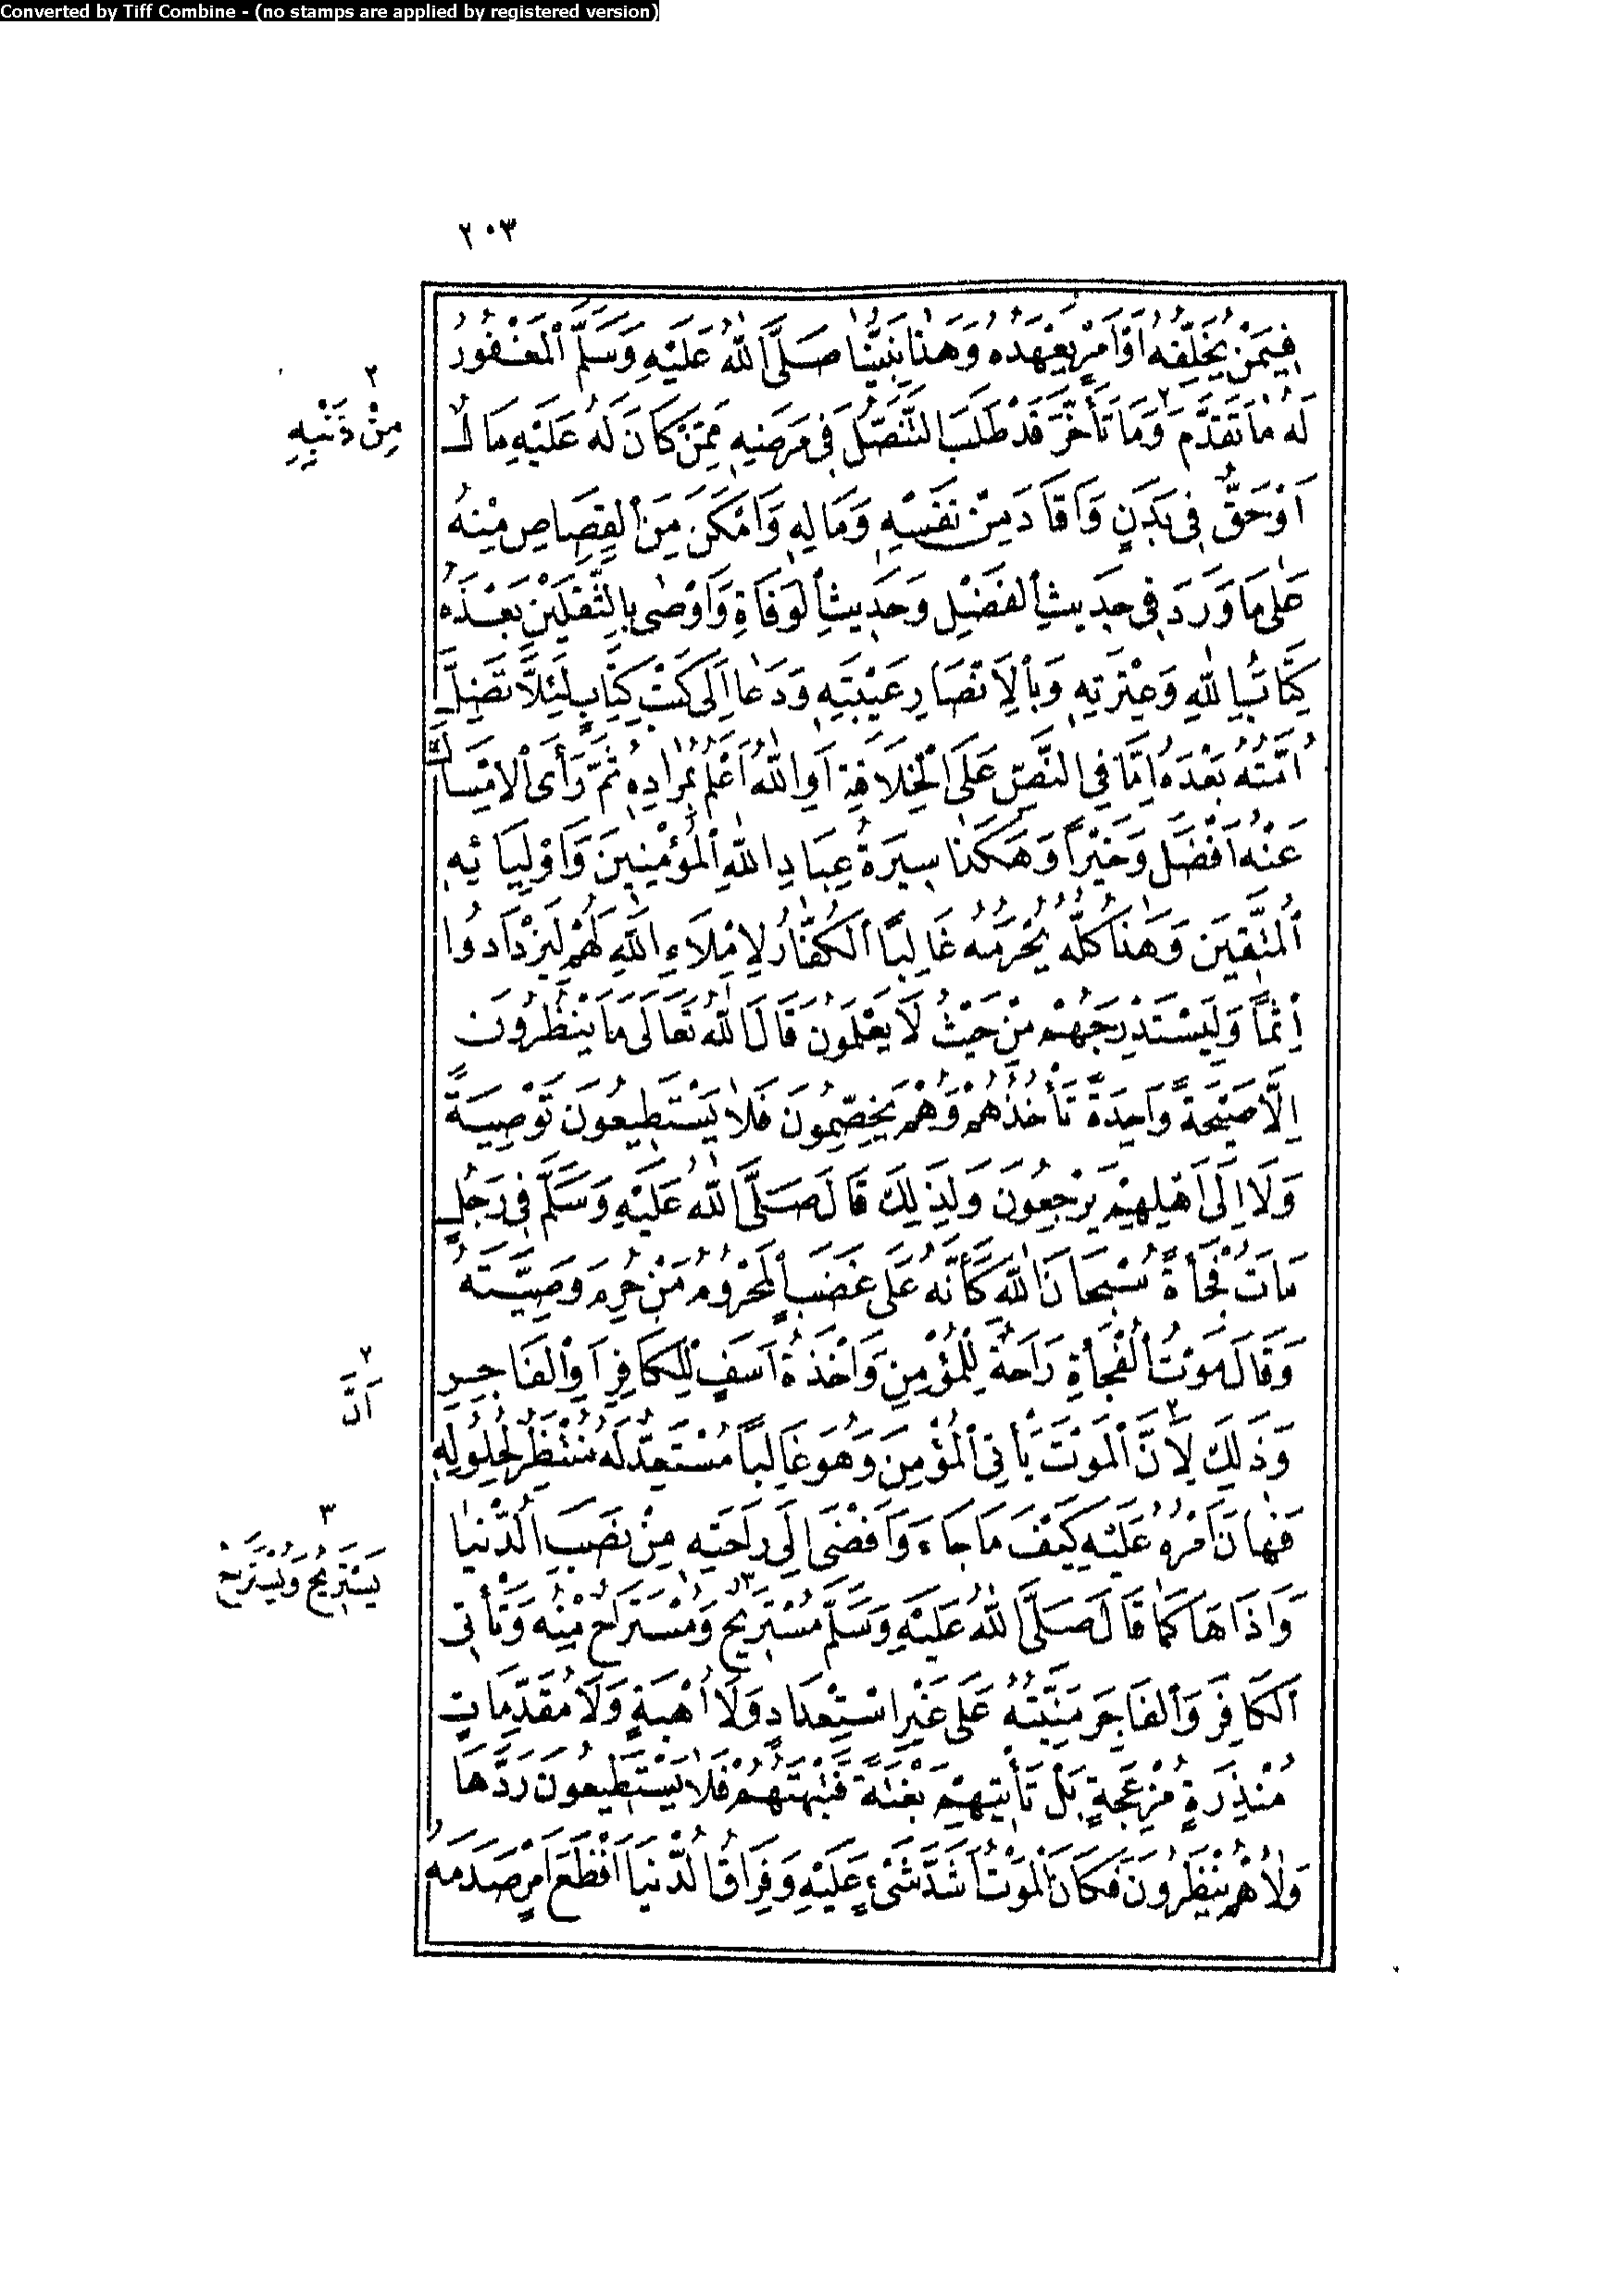 Converted by Tiff Combine - (no stamps are applied by registered version)
٢٠٣
فِيمَنْ يُخَلِّفُهُ أَوْ أَمْرٍ يَعْهَدُهُ وَهَذَا نَبِيُّنَا صَلَّى اللهُ عَلَيْهِ وَسَلَّمَ الْمَغْفُورُ
لَهُ مَا تَقَدَّمَ ٢ وَمَا تَأَخَّرَ قَدْ طَلَبَ التَّنَصُّلَ فِي مَرَضِهِ مِمَّنْ كَانَ لَهُ عَلَيْهِ مَالٌ
٢
مِنْ ذَنْبِهِ
أَوْ حَقٌّ فِي بَدَنٍ وَأَقَادَ مِنْ نَفْسِهِ وَمَالِهِ وَأَمْكَنَ مِنَ الْقِصَاصِ مِنْهُ
عَلَى مَا وَرَدَ فِي حَدِيثِ الْفَضْلِ وَحَدِيثِ الْوَفَاةِ وَأَوْصَى بِالثَّقَلَيْنِ بَعْدَهُ
كِتَابِ اللهِ وَعِتْرَتِهِ وَبِالْأَنْصَارِ عَيْبَتِهِ وَدَعَا إِلَى كَتْبِ كِتَابٍ لِئَلَّا تَضِلَّ
أُمَّتُهُ بَعْدَهُ إِمَّا فِي النَّصِّ عَلَى الْخِلَافَةِ أَوِ اللهُ أَعْلَمُ بِمُرَادِهِ ثُمَّ رَأَى الْإِمْسَاكَ
عَنْهُ أَفْضَلَ وَخَيْراً وَهَكَذَا سِيرَةُ عِبَادِ اللهِ الْمُؤْمِنِينَ وَأَوْلِيَائِهِ
الْمُتَّقِينَ وَهَذَا كُلُّهُ يُحْرَمُهُ غَالِباً الْكُفَّارُ لِإِمْلَاءِ اللهِ لَهُمْ لِيَزْدَادُوا
إِثْماً وَلِيَسْتَدْرِجَهُمْ مِنْ حَيْثُ لَا يَعْلَمُونَ قَالَ اللهُ تَعَالَى مَا يَنْظُرُونَ
إِلَّا صَيْحَةً وَاحِدَةً تَأْخُذُهُمْ وَهُمْ يَخِصِّمُونَ فَلَا يَسْتَطِيعُونَ تَوْصِيَةً
وَلَا إِلَى أَهْلِهِمْ يَرْجِعُونَ وَلِذَلِكَ قَالَ صَلَّى اللهُ عَلَيْهِ وَسَلَّمَ فِي رَجُلٍ
مَاتَ فُجْأَةً سُبْحَانَ اللهِ كَأَنَّهُ عَلَى غَضَبٍ الْمَحْرُومُ مَنْ حُرِمَ وَصِيَّتَهُ
وَقَالَ مَوْتُ الْفَجْأَةِ رَاحَةٌ لِلْمُؤْمِنِ وَأَخْذَةُ أَسَفٍ لِلْكَافِرِ أَوِ الْفَاجِرِ
٢
أَنَّ
وَذَلِكَ لِأَنَّ ٢ الْمَوْتَ يَأْتِي الْمُؤْمِنَ وَهُوَ غَالِباً مُسْتَعِدٌّ لَهُ مُنْتَظِرٌ لِحُلُولِهِ
فَهَانَ أَمْرُهُ عَلَيْهِ كَيْفَ مَا جَاءَ وَأَفْضَى إِلَى رَاحَتِهِ مِنْ نَصَبِ الدُّنْيَا
٣
يَسْتَرِيحُ وَيُسْتَرَيحُ
وَأَذَاهَا كَمَا قَالَ صَلَّى اللهُ عَلَيْهِ وَسَلَّمَ مُسْتَرِيحٌ ٣ وَمُسْتَرَاحٌ مِنْهُ وَتَأْتِي
الْكَافِرَ وَالْفَاجِرَ مَنِيَّتُهُ عَلَى غَيْرِ اسْتِعْدَادٍ وَلَا أُهْبَةٍ وَلَا مُقَدِّمَاتٍ
مُنْذِرَةٍ مُزْعِجَةٍ بَلْ تَأْتِيهِمْ بَغْتَةً فَتَبْهَتُهُمْ فَلَا يَسْتَطِيعُونَ رَدَّهَا
وَلَا هُمْ يُنْظَرُونَ فَكَانَ الْمَوْتُ أَشَدَّ شَيْءٍ عَلَيْهِ وَفِرَاقُ الدُّنْيَا أَفْظَعَ أَمْرٍ صَدَمَهُ